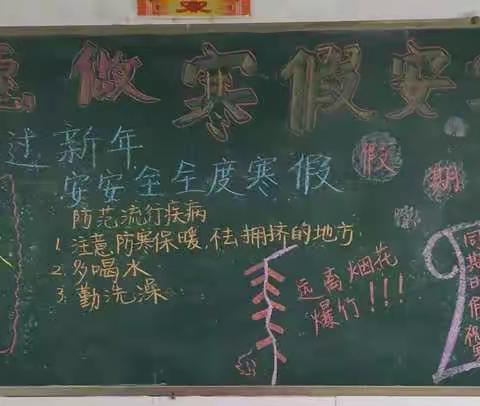 做寒假安
过新年
安安全全度寒假
假期
防范流行疾病
1. 注意防寒保暖,拥挤的地方
2. 多喝水
3. 勤洗澡
远离烟花
爆竹!!!
同
期
的
假